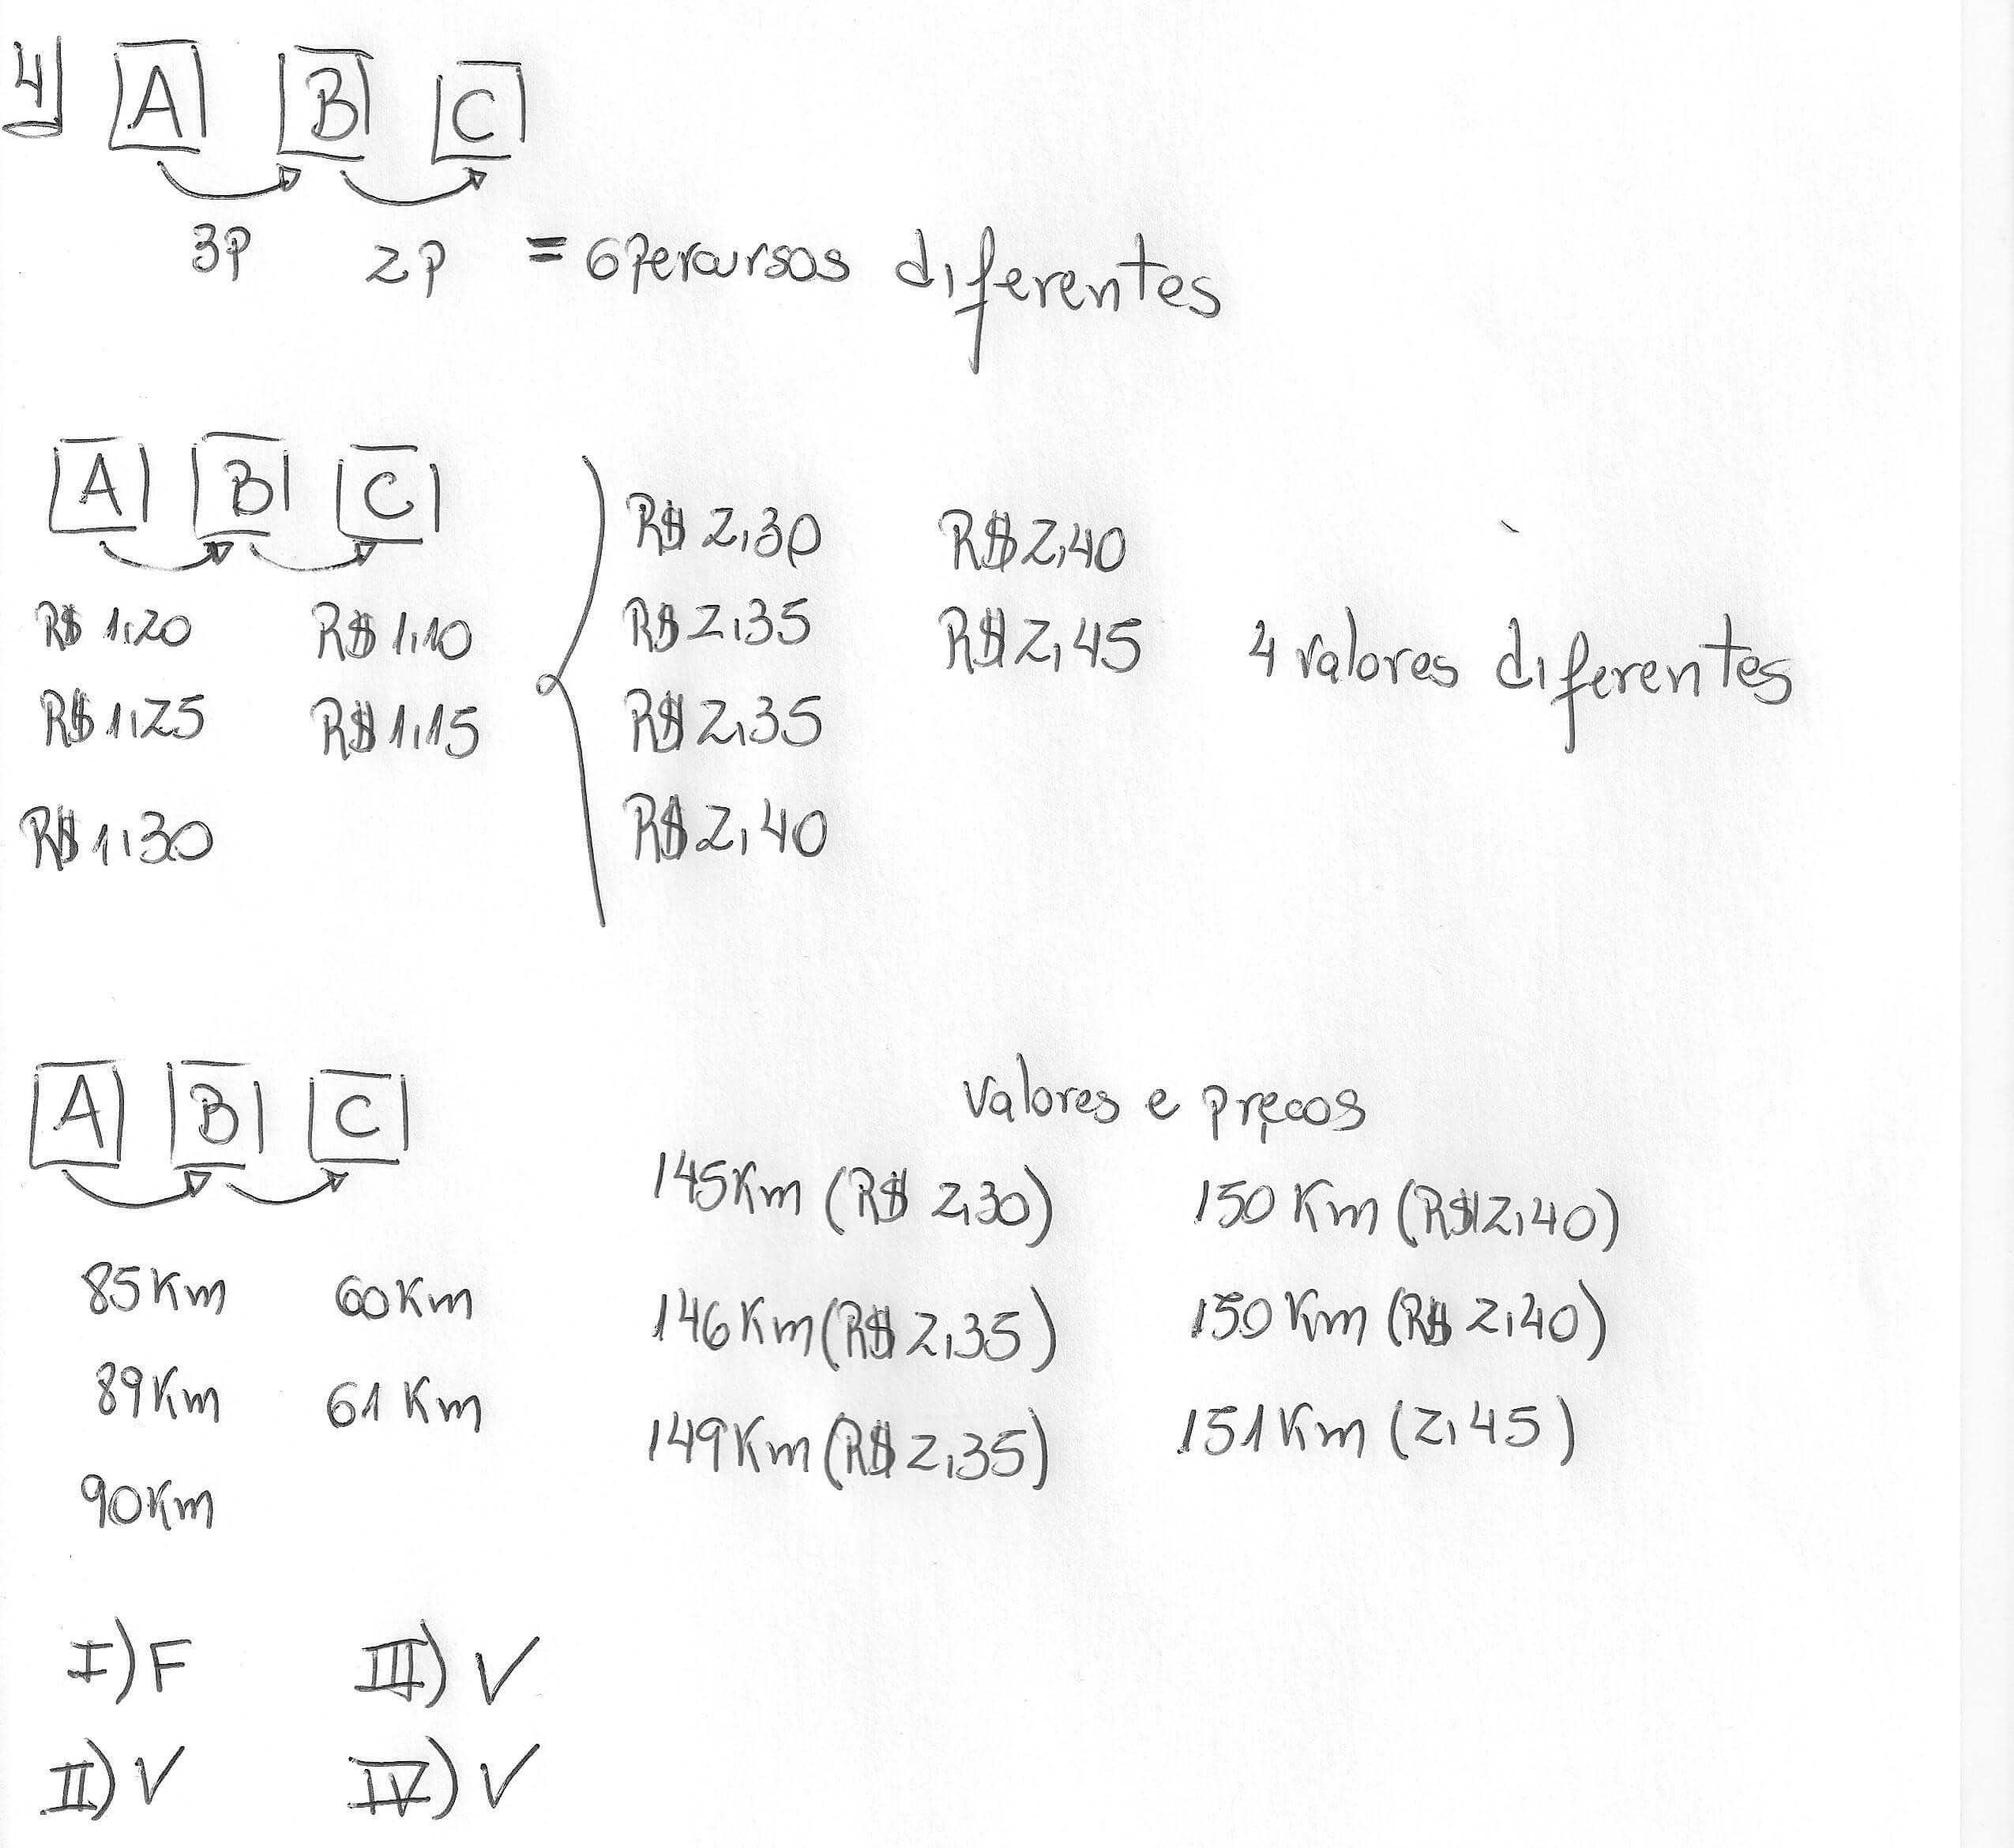 4) A B C
3P 2P = 6 Percursos diferentes
A B C
R$ 2,30 R$ 2,40
R$ 1,20 R$ 1,10 R$ 2,35 R$ 2,45 4 valores diferentes
R$ 1,25 R$ 1,15 R$ 2,35
R$ 1,30 R$ 2,40
A B C
valores e preços
145 Km (R$ 2,30) 150 Km (R$ 2,40)
85 Km 60 Km 146 Km (R$ 2,35) 150 Km (R$ 2,40)
89 Km 61 Km 149 Km (R$ 2,35) 151 Km (2,45)
90 Km
I) F III) V
II) V IV) V